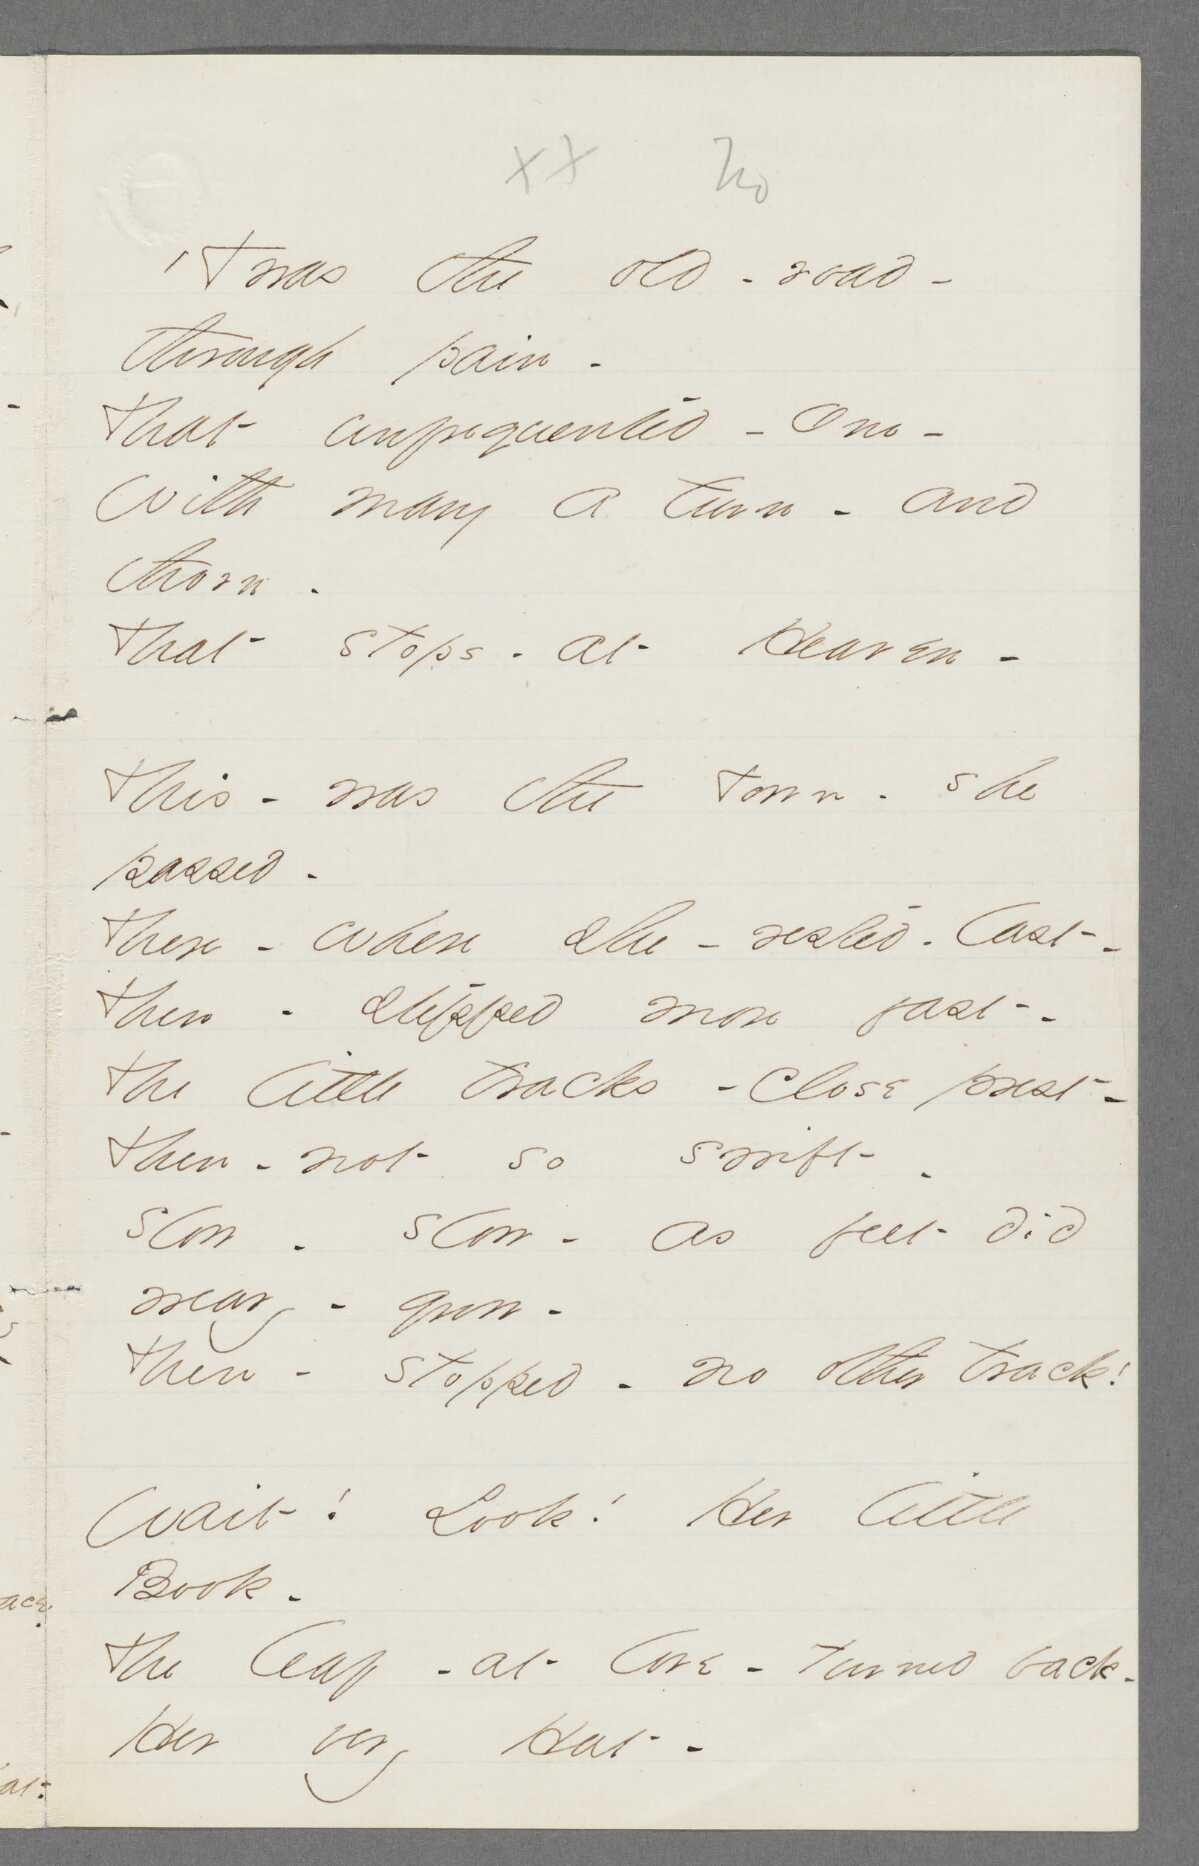 xx no
'Twas the old - road -
through pain -
That unfrequented - One -
With many a turn - and
thorn -
That stops - at Heaven -
This - was the Town - she
passed -
There - where she - rested - last -
Then - stepped more fast -
The little tracks - close prest -
Then - not so swift -
Slow - slow - as feet did
weary - grow -
Then - stopped - no other track!
Wait! Look! Her little
Book -
The leaf - at love - turned back -
Her very Hat -